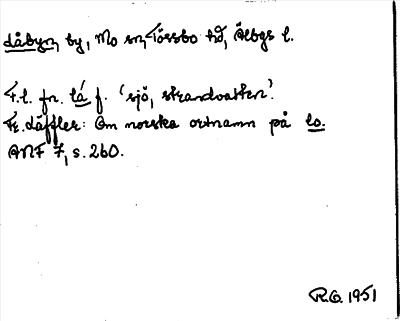 Låbyn, by, Mo sn, Tössbo hd, Älvbgs l.
F.l. fn. lá f. 'sjö, strandvatten'.
Fr. Läffler: Om norska ortnamn på lo.
ANF 7, s. 260.
R.O. 1951